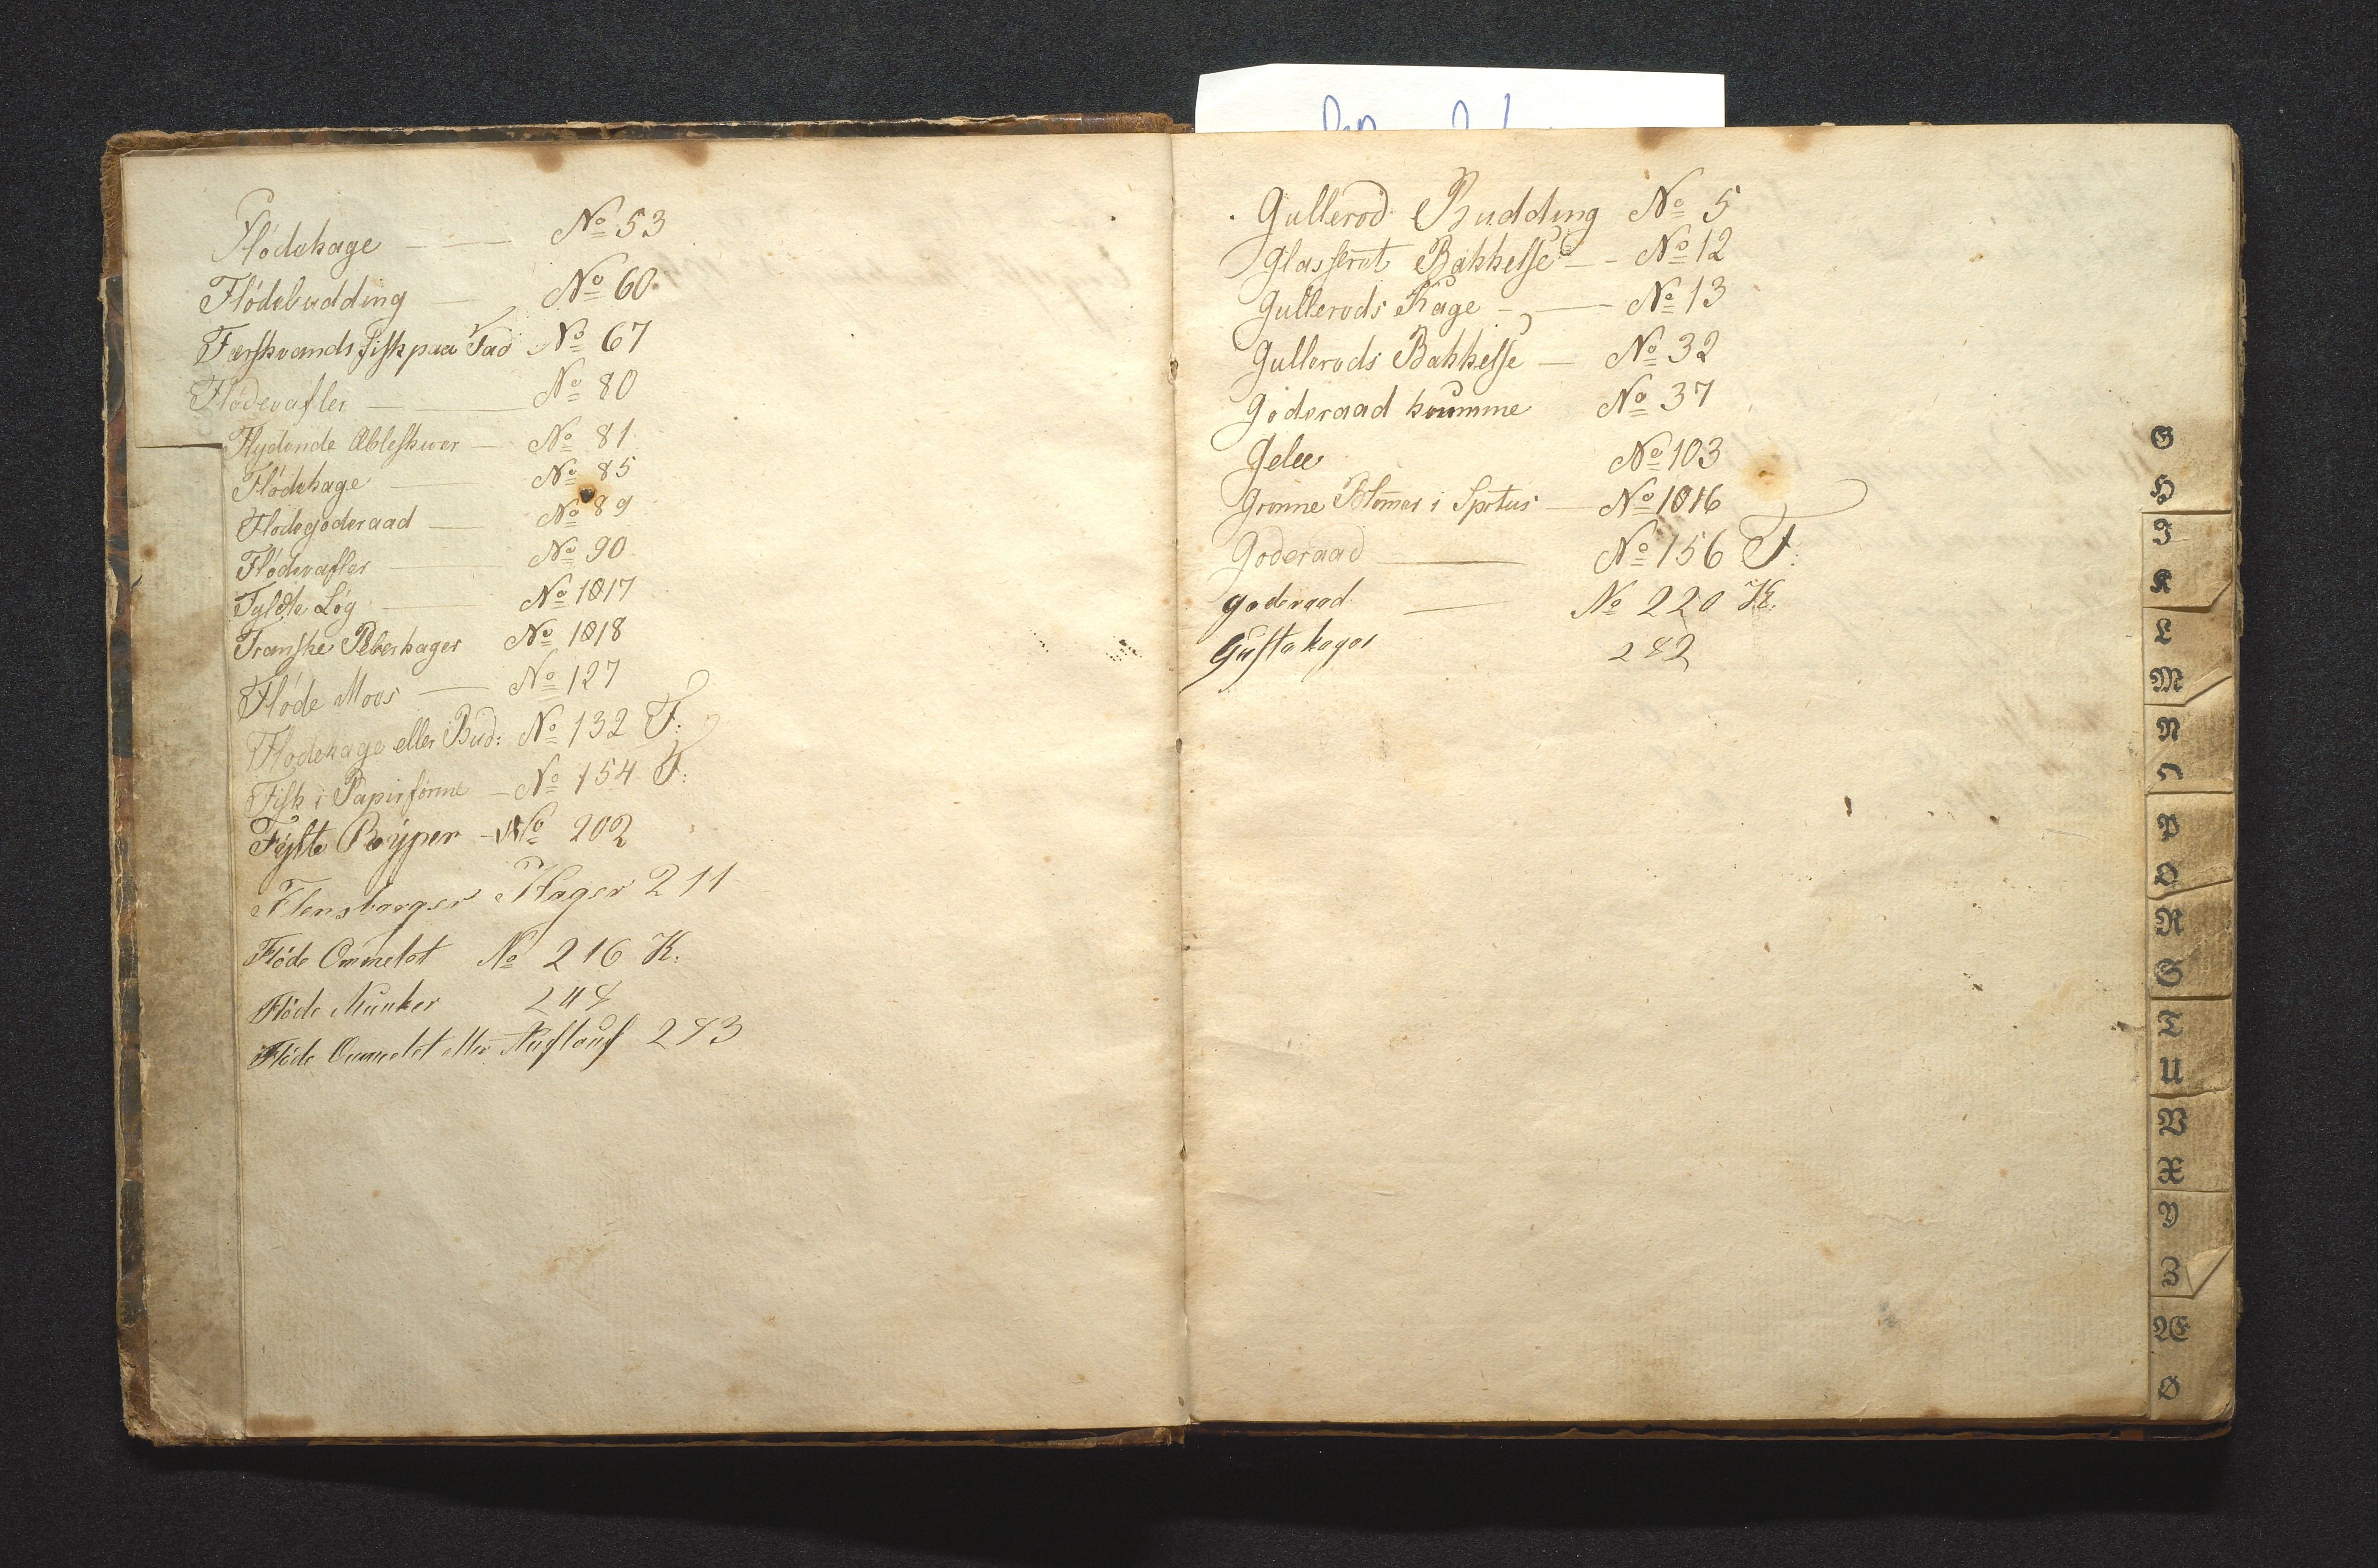 Flödekage — No 53
Flödebudding — No 60
Færskvands Fisk paa Fad No 67
Flödevafler — No 80
Flydende Æbleskiver — No 81
Flödekage — No 85
Flodegoderaad — No 89
Flödevafler — No 90
Fyldte Lög — No 1017
Franske Peberkager No 1018
Flöde Moos — No 127
Flodekage eller Bud: No 132 F:
Fisk i Papirforme — No 154 F:
Fyllte Ryper — No 202
Flensborger Kager 211
Flöde Ommelet No 216 K.
Flöde Munker 244
Flöde Ommelet eller Auflauf 243
Gullerod Budding No 5
Glasseret Bakkelse — No 12
Gullerods Kage — No 13
Gullerods Bakkelse — No 32
Goderaad krumme No 37
Gelee No 103
Gronne Blomer i Sprtus — No 1016
Goderaad — No 156 F:
goderaad — No 220 K.
Gustakager 242
G
H
I
K
L
M
N
O
P
Q
R
S
T
U
V
X
Y
Z
Æ
Ø